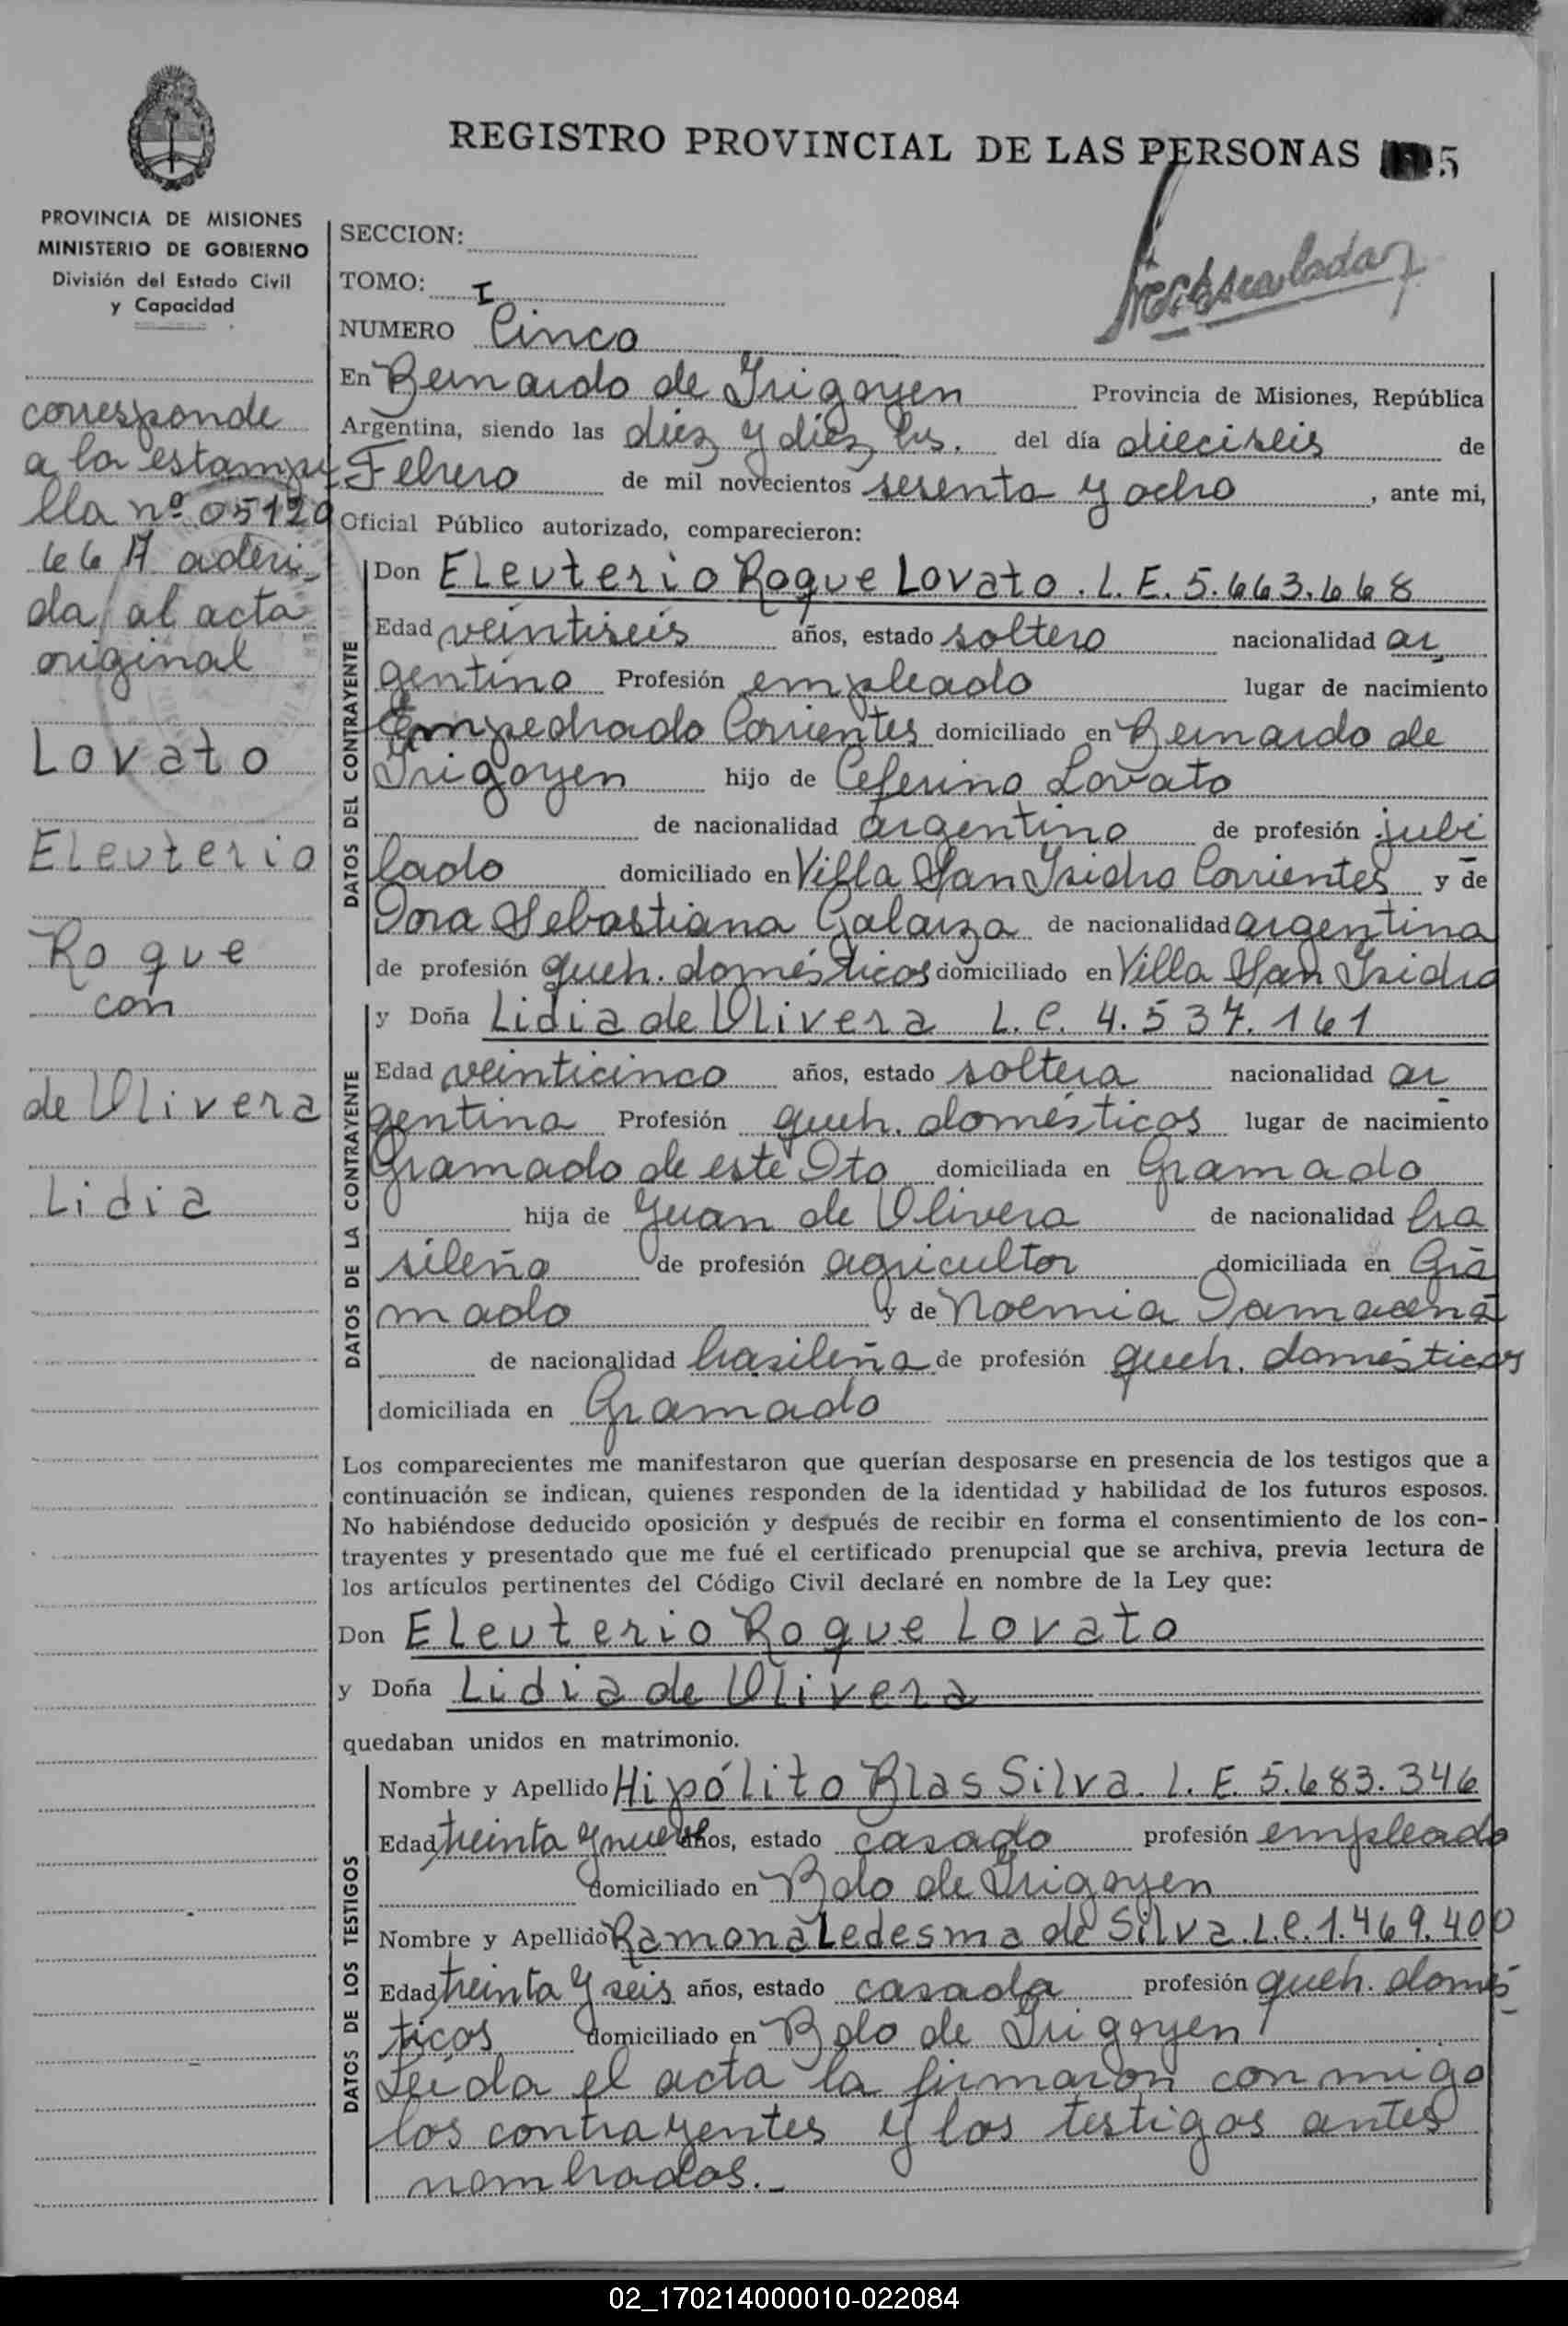 REGISTRO PROVINCIAL DE LAS PERSONAS 5
PROVINCIA DE MISIONES
MINISTERIO DE GOBIERNO
División del Estado Civil
y Capacidad
corresponde
a la estampi
lla nº 05129
66 A aderi
da al acta
original
Lovato
Eleuterio
Roque
con
de Olivera
Lidia
SECCION:
TOMO: I
NUMERO Cinco
En Bernardo de Irigoyen Provincia de Misiones, República
Argentina, siendo las diez y diez hs. del día dieciseis de
Febrero de mil novecientos sesenta y ocho, ante mi,
Oficial Público autorizado, comparecieron:
DATOS DEL CONTRAYENTE
Don Eleuterio Roque Lovato. L. E. 5.663.668
Edad veintiseis años, estado soltero nacionalidad ar
gentino Profesión empleado lugar de nacimiento
Empedrado Corrientes domiciliado en Bernardo de
Irigoyen hijo de Ceferino Lovato
de nacionalidad argentino de profesión jubi
lado domiciliado en Villa San Isidro Corrientes y de
Dora Sebastiana Galarza de nacionalidad argentina
de profesión queh. domésticos domiciliado en Villa San Isidro
DATOS DE LA CONTRAYENTE
y Doña Lidia de Olivera L. C. 4.537.161
Edad veinticinco años, estado soltera nacionalidad ar
gentina Profesión queh. domésticos lugar de nacimiento
Gramado de este Dto domiciliada en Gramado
hija de Juan de Olivera de nacionalidad bra
sileña de profesión agricultor domiciliada en Gra
mado y de Noemia Damacena
de nacionalidad brasileña de profesión queh. domésticos
domiciliada en Gramado
Los comparecientes me manifestaron que querían desposarse en presencia de los testigos que a
continuación se indican, quienes responden de la identidad y habilidad de los futuros esposos.
No habiéndose deducido oposición y después de recibir en forma el consentimiento de los con-
trayentes y presentado que me fué el certificado prenupcial que se archiva, previa lectura de
los artículos pertinentes del Código Civil declaré en nombre de la Ley que:
Don Eleuterio Roque Lovato
y Doña Lidia de Olivera
quedaban unidos en matrimonio.
DATOS DE LOS TESTIGOS
Nombre y Apellido Hipólito Blas Silva. L. E. 5.683.346
Edad treinta y nueve años, estado casado profesión empleado
domiciliado en Bdo de Irigoyen
Nombre y Apellido Ramona Ledesma de Silva. L.C. 1.469.400
Edad treinta y seis años, estado casada profesión queh. domés
ticos domiciliado en Bdo de Irigoyen
Leída el acta la firmaron conmigo
los contrayentes y los testigos antes
nombrados.
02_170214000010-022084